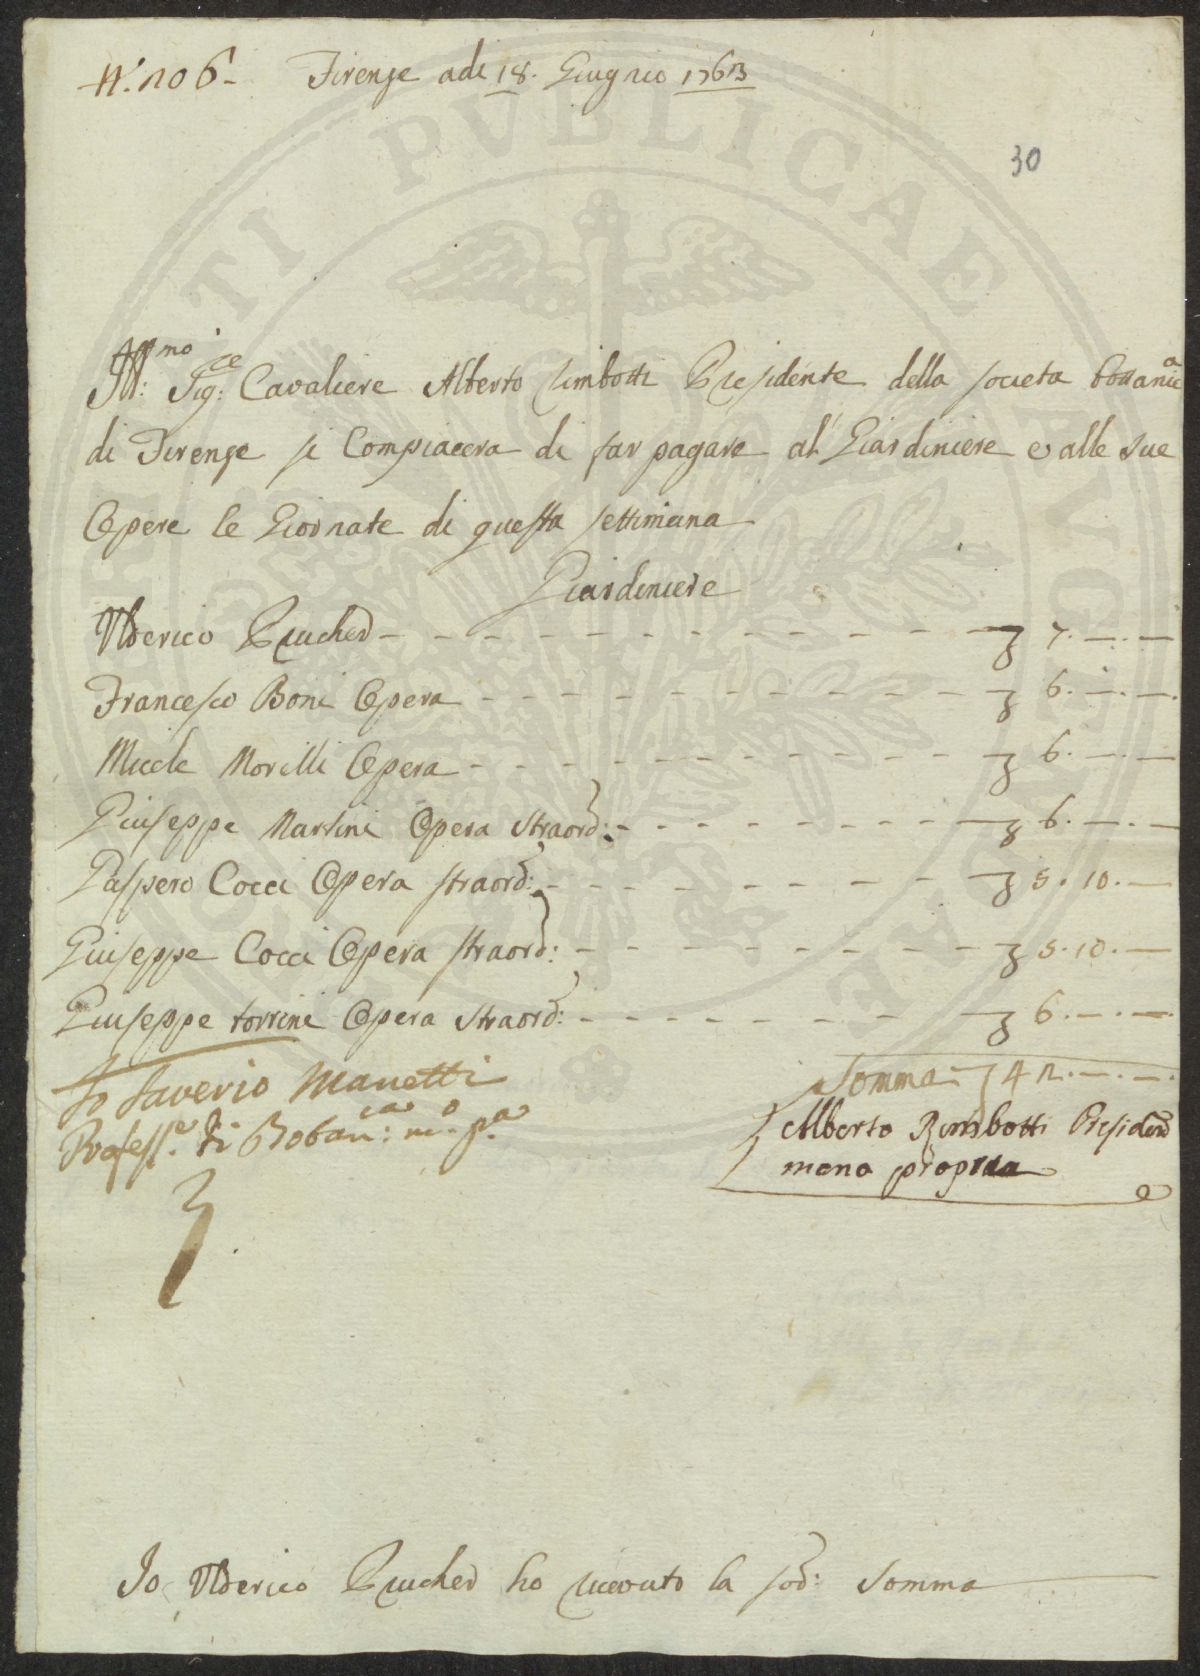 N.° 106. Firenze adi 18. Giugnio 1763
30
Ill:mo Sig:re Cavaliere Alberto Rimbotti Presidente della societa bottanica
di Firenze si Compiacera di far pagare al Giardiniere e alle sue
Opere le Giornate di questa settimana
Giardiniere
Ulderico Prucher - - - £ 7. —. —
Francesco Boni Opera - - - £ 6. —. —
Micele Morelli Opera - - - £ 6. —. —
Giuseppe Martini Opera straord: - - - £ 6. —. —
Gaspero Cocci Opera straord: - - - £ 5. 10. —
Giuseppe Cocci Opera straord: - - - £ 5. 10. —
Giuseppe torrini Opera straord: - - - £ 6. —. —
Somma £ 42. —. —
Io Saverio Manetti
Profess.e di Botan:ca m.o p.a
Alberto Rimbotti Presidente
mano propria
Io Ulderico Prucher ho ricevuto la sod: Somma
PVBLICAE